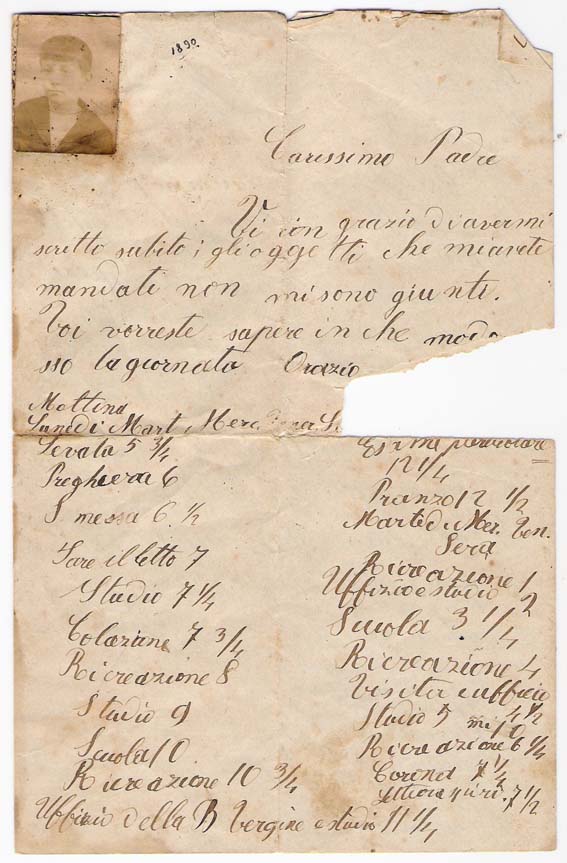 1890.
Carissimo Padre
Vi con grazio di avermi
scritto subito; gli oggetti che mi avete
mandati non mi sono giunti.
Voi vorreste sapere in che modo
sso la giornata Orazio
Mattina
Lunedi Mart. Merc
Levata 5 3/4
Preghiera 6
S. messa 6. 1/2
Fare il letto 7
Studio 7 1/4
Colazione 7 3/4
Ricreazione 8
Studio 9
Scuola 10
Ricreazione 10 3/4
Uffizio della B Vergine e studio 11 1/4
Esame particolare
12 1/4
Pranzo 12 1/2
Martedi Mer. Ven.
Sera
Ricreazione 1
Uffizio e studio 2
Scuola 3 1/2
Ricreazione 4
Visita e ufficio
4 1/2
Studio 5
Ricreazione 6 1/4
Corona 7 1/4
7 1/2